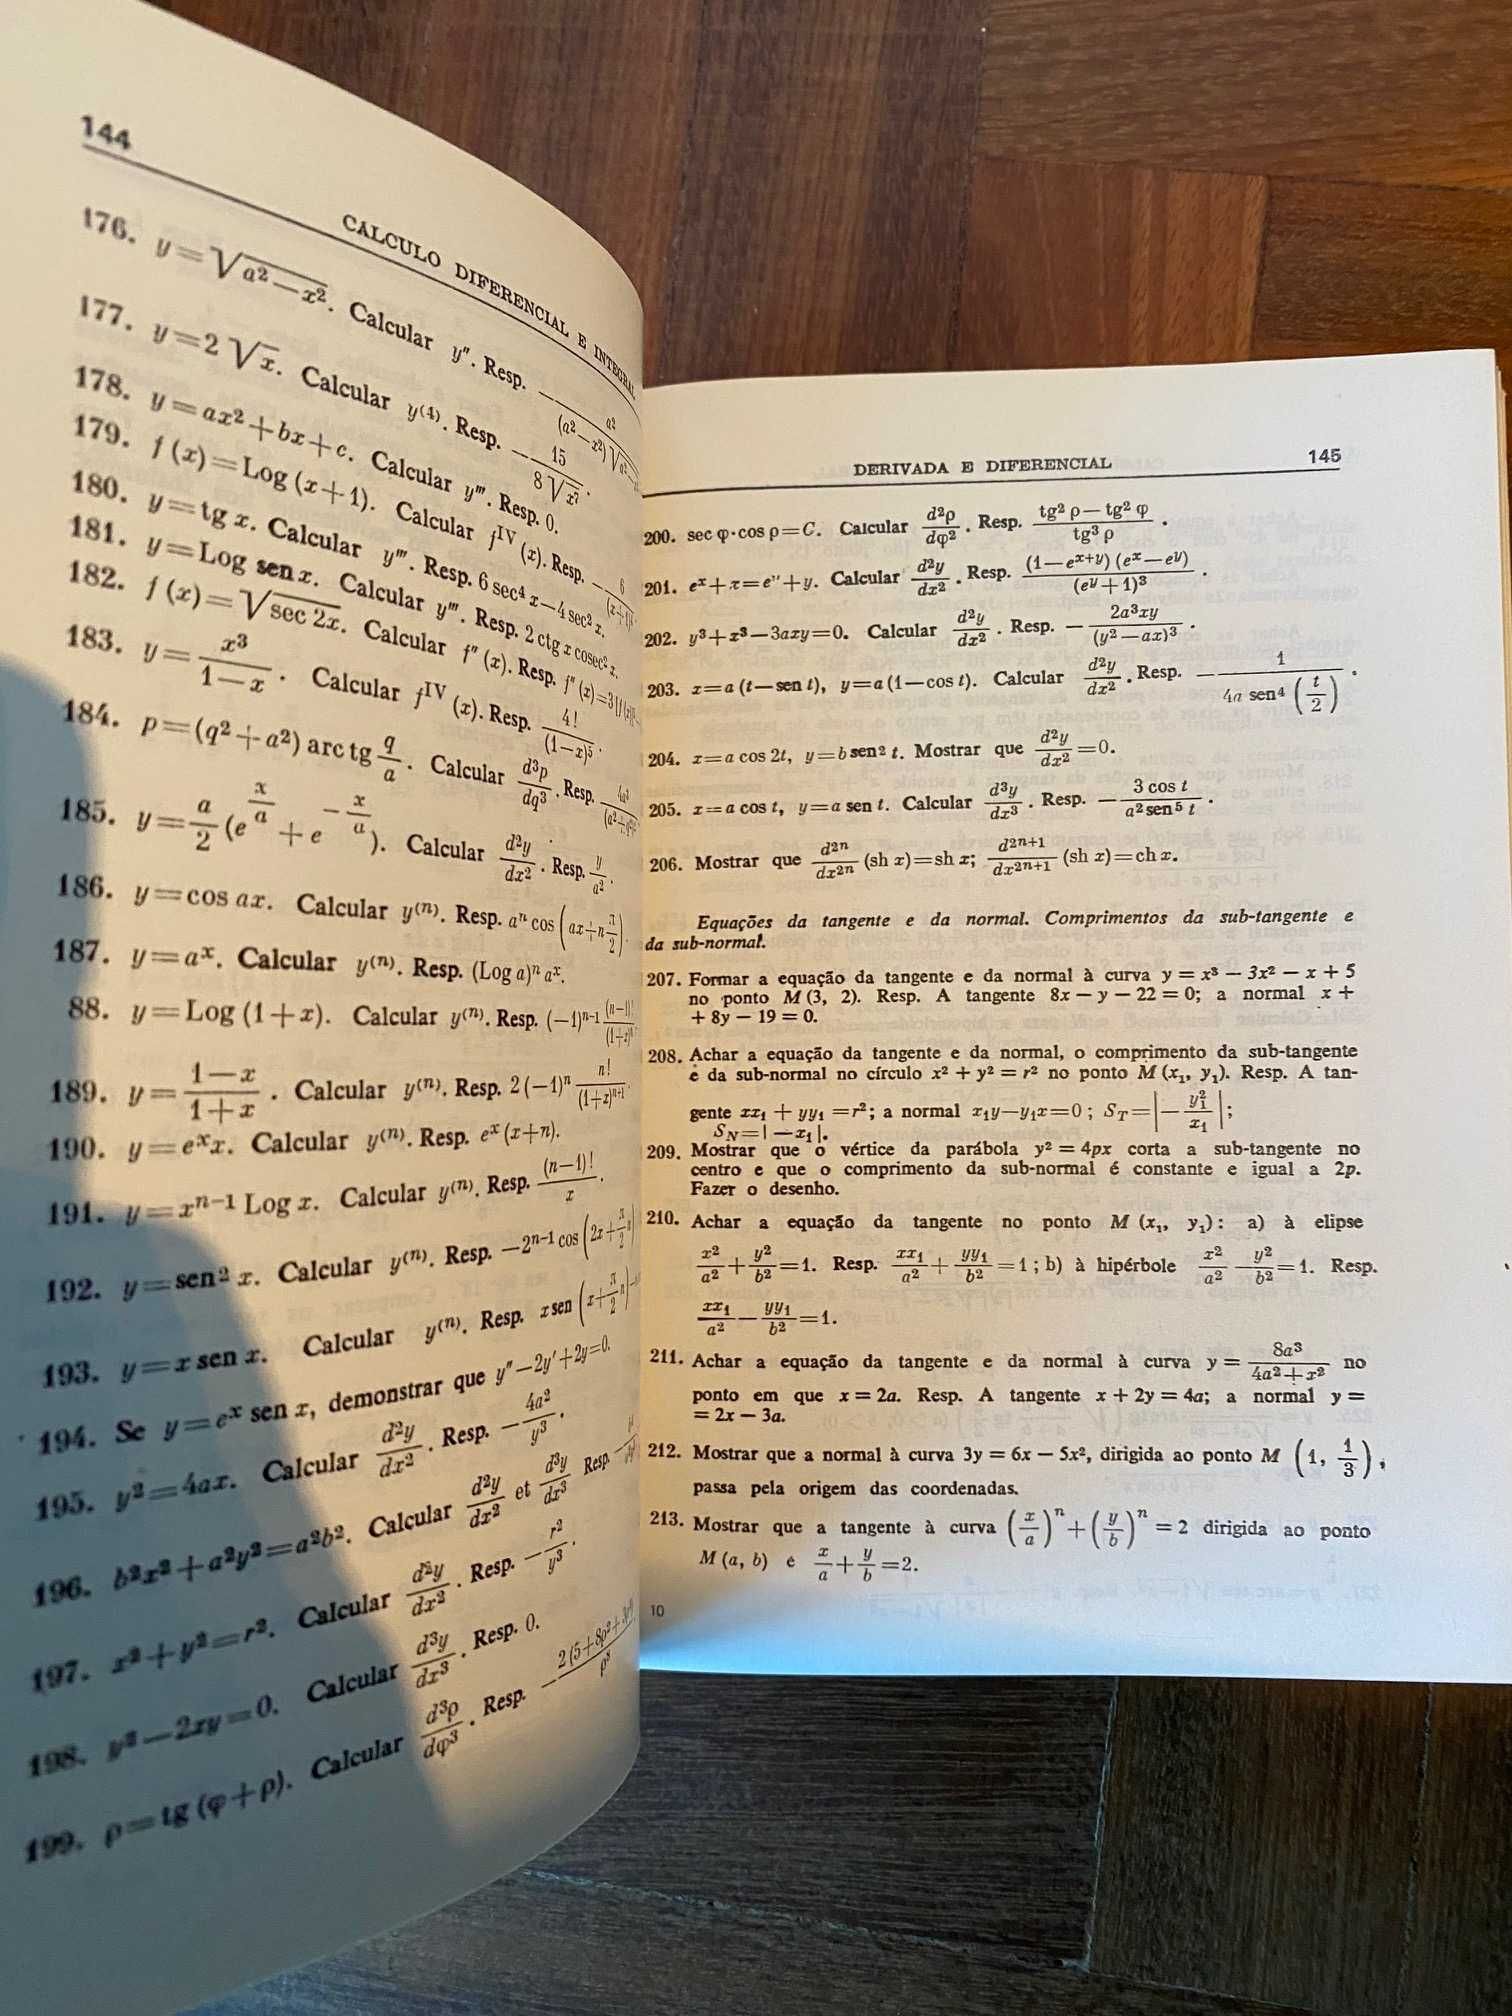 144
CALCULO DIFERENCIAL E INTEGRAL
176. y=√(a²−x²). Calcular y″. Resp. −a²/((a²−x²)√a²
177. y=2√x. Calcular y⁽⁴⁾. Resp. −15/(8√x⁷).
178. y=ax²+bx+c. Calcular y‴. Resp. 0.
179. f (x)=Log (x+1). Calcular fᴵⱽ (x). Resp. −6/(x+1)⁴
180. y=tg x. Calcular y‴. Resp. 6 sec⁴ x−4 sec² x.
181. y=Log sen x. Calcular y‴. Resp. 2 ctg x cosec² x.
182. f (x)=√(sec 2x). Calcular f″ (x). Resp. f″ (x)=3[f (x)]⁵
183. y=x³/(1−x). Calcular fᴵⱽ (x). Resp. 4!/(1−x)⁵.
184. p=(q²+a²) arc tg q/a. Calcular d³p/dq³. Resp. 4a³/(a²+q²)²
185. y=a/2 (e^(x/a) + e^(−x/a)). Calcular d²y/dx². Resp. y/a².
186. y=cos ax. Calcular y⁽ⁿ⁾. Resp. aⁿ cos (ax+n π/2).
187. y=aˣ. Calcular y⁽ⁿ⁾. Resp. (Log a)ⁿ aˣ.
88. y=Log (1+x). Calcular y⁽ⁿ⁾. Resp. (−1)ⁿ⁻¹ (n−1)!/(1+x)ⁿ
189. y=(1−x)/(1+x). Calcular y⁽ⁿ⁾. Resp. 2 (−1)ⁿ n!/(1+x)ⁿ⁺¹.
190. y=eˣx. Calcular y⁽ⁿ⁾. Resp. eˣ (x+n).
191. y=xⁿ⁻¹ Log x. Calcular y⁽ⁿ⁾. Resp. (n−1)!/x.
192. y=sen² x. Calcular y⁽ⁿ⁾. Resp. −2ⁿ⁻¹ cos (2x+π/2 n)
193. y=x sen x. Calcular y⁽ⁿ⁾. Resp. x sen (x+π/2 n)−
194. Se y=eˣ sen x, demonstrar que y″−2y′+2y=0.
195. y²=4ax. Calcular d²y/dx². Resp. −4a²/y³.
196. b²x²+a²y²=a²b². Calcular d²y/dx² et d³y/dx³ Resp. −
197. x²+y²=r². Calcular d²y/dx². Resp. −r²/y³.
198. y²−2xy=0. Calcular d³y/dx³. Resp. 0.
199. ρ=tg (φ+ρ). Calcular d³ρ/dφ³. Resp. −2 (5+8ρ²+3ρ⁴)/ρ⁸
DERIVADA E DIFERENCIAL 145
200. sec φ·cos ρ=C. Calcular d²ρ/dφ². Resp. (tg² ρ−tg² φ)/tg³ ρ.
201. eˣ+x=eʸ+y. Calcular d²y/dx². Resp. (1−eˣ⁺ʸ) (eˣ−eʸ)/(eʸ+1)³.
202. y³+x³−3axy=0. Calcular d²y/dx². Resp. −2a³xy/(y²−ax)³.
203. x=a (t−sen t), y=a (1−cos t). Calcular d²y/dx². Resp. −1/(4a sen⁴ (t/2)).
204. x=a cos 2t, y=b sen² t. Mostrar que d²y/dx²=0.
205. x=a cos t, y=a sen t. Calcular d³y/dx³. Resp. −3 cos t/(a² sen⁵ t).
206. Mostrar que d²ⁿ/dx²ⁿ (sh x)=sh x; d²ⁿ⁺¹/dx²ⁿ⁺¹ (sh x)=ch x.
Equações da tangente e da normal. Comprimentos da sub-tangente e
da sub-normal.
207. Formar a equação da tangente e da normal à curva y = x³ − 3x² − x + 5
no ponto M (3, 2). Resp. A tangente 8x − y − 22 = 0; a normal x +
+ 8y − 19 = 0.
208. Achar a equação da tangente e da normal, o comprimento da sub-tangente
e da sub-normal no círculo x² + y² = r² no ponto M (x₁, y₁). Resp. A tan-
gente xx₁ + yy₁ =r²; a normal x₁y−y₁x=0 ; S_T=|−y₁²/x₁|;
S_N=| −x₁|.
209. Mostrar que o vértice da parábola y² = 4px corta a sub-tangente no
centro e que o comprimento da sub-normal é constante e igual a 2p.
Fazer o desenho.
210. Achar a equação da tangente no ponto M (x₁, y₁): a) à elipse
x²/a²+y²/b²=1. Resp. xx₁/a²+yy₁/b²=1 ; b) à hipérbole x²/a²−y²/b²=1. Resp.
xx₁/a²−yy₁/b²=1.
211. Achar a equação da tangente e da normal à curva y=8a³/(4a²+x²) no
ponto em que x = 2a. Resp. A tangente x + 2y = 4a; a normal y =
= 2x − 3a.
212. Mostrar que a normal à curva 3y = 6x − 5x², dirigida ao ponto M (1, 1/3),
passa pela origem das coordenadas.
213. Mostrar que a tangente à curva (x/a)ⁿ+(y/b)ⁿ=2 dirigida ao ponto
M (a, b) é x/a+y/b=2.
10